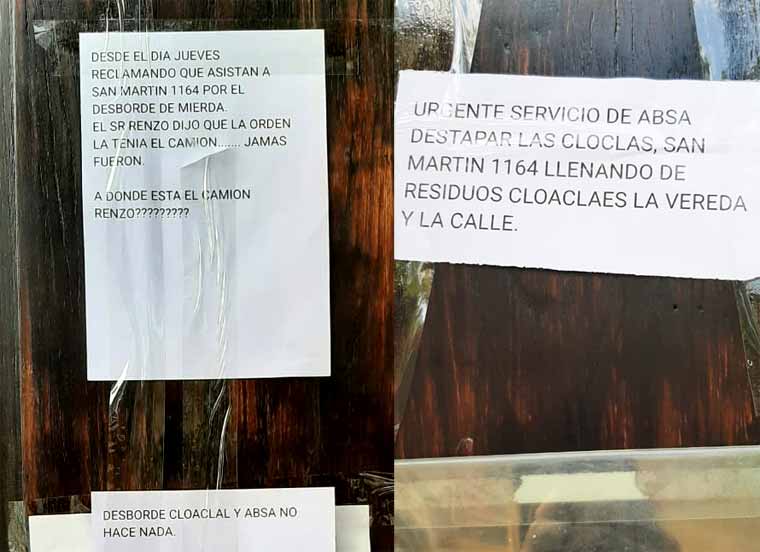 DESDE EL DIA JUEVES
RECLAMANDO QUE ASISTAN A
SAN MARTIN 1164 POR EL
DESBORDE DE MIERDA.
EL SR RENZO DIJO QUE LA ORDEN
LA TENIA EL CAMION....... JAMAS
FUERON.
A DONDE ESTA EL CAMION
RENZO?????????
DESBORDE CLOACLAL Y ABSA NO
HACE NADA.
URGENTE SERVICIO DE ABSA
DESTAPAR LAS CLOCLAS, SAN
MARTIN 1164 LLENANDO DE
RESIDUOS CLOACLAES LA VEREDA
Y LA CALLE.